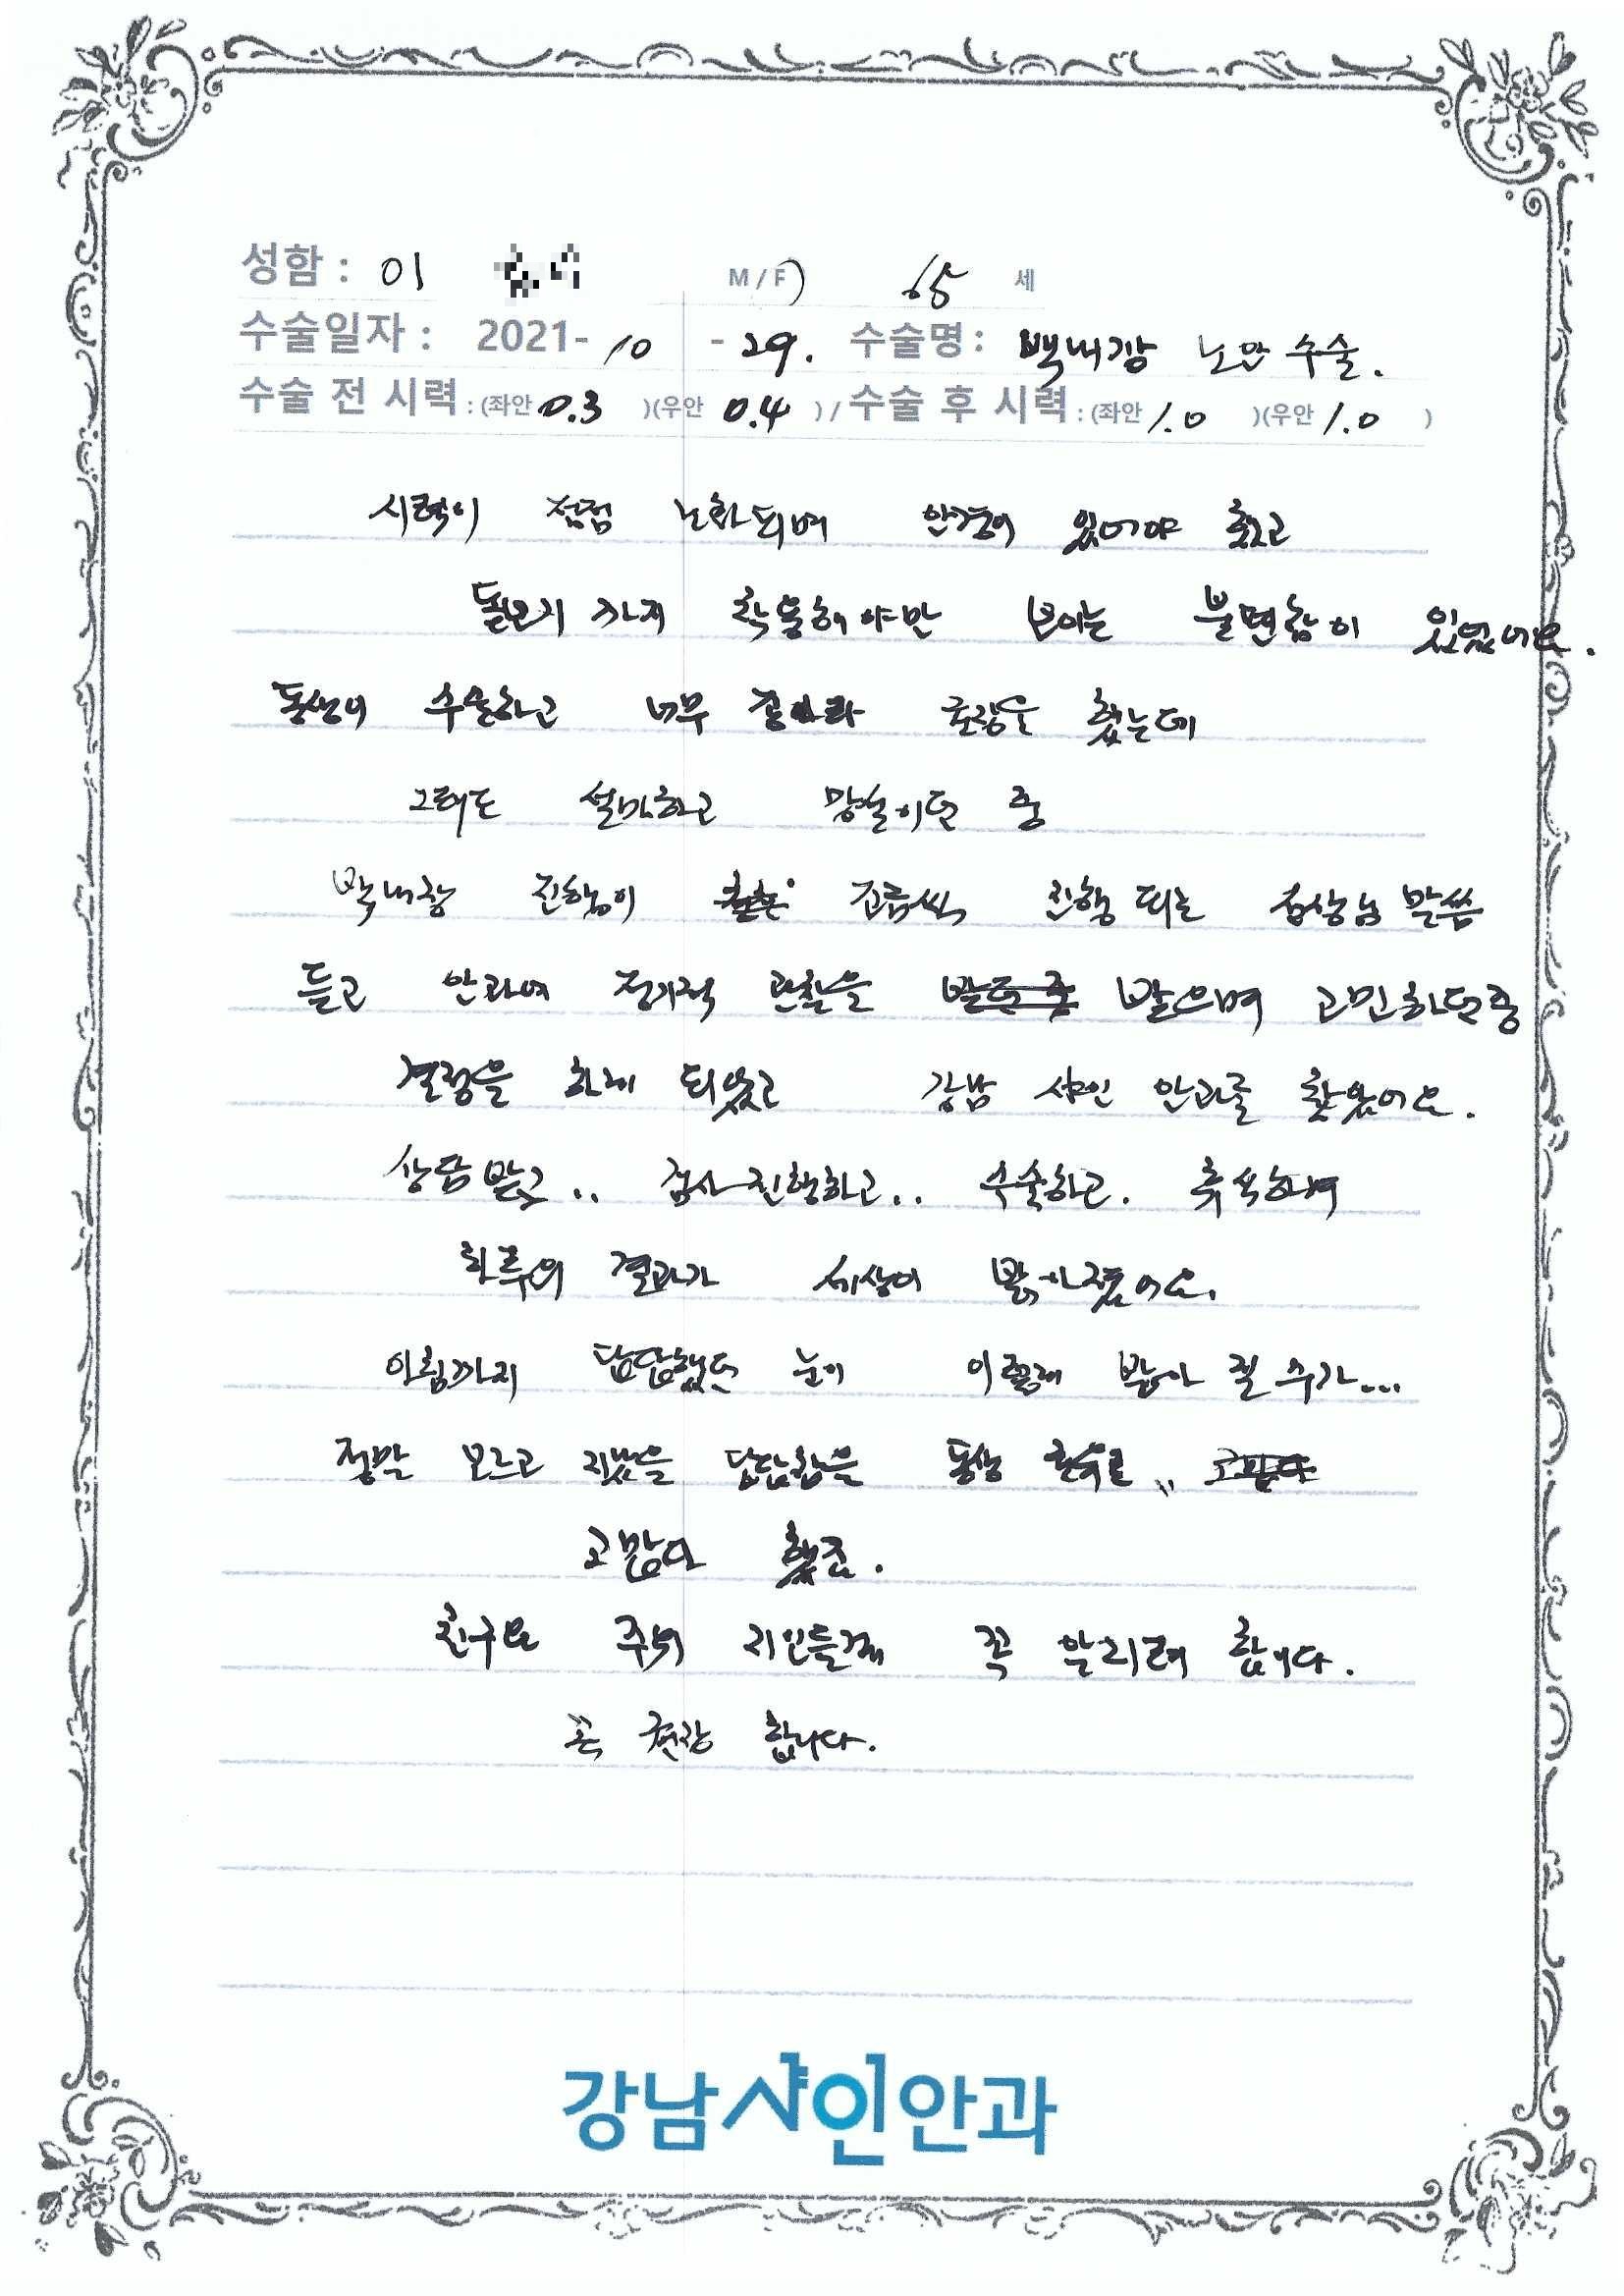 성함 : 이 M / F 65 세
수술일자 : 2021- 10 - 29. 수술명 : 백내장 노안 수술.
수술 전 시력 : (좌안 0.3 )(우안 0.4 ) / 수술 후 시력 : (좌안 1.0 )(우안 1.0 )
시력이 점점 노화되며 안경이 있어야 했고
돋보기 까지 착용해야만 보이는 불편함이 있었어요.
동생이 수술하고 너무 좋아라 했는데
그래도 설마하고 망설이던 중
백내장 진행이 조금씩 진행 되는 원장님 말씀
듣고 안과에 정기적 관찰을 받으며 고민하던중
결정을 하게 되었고 강남 샤인 안과를 찾았어요.
상담 받고 .. 검사 진행하고.. 수술하고. 휴식하며
하루의 결과가 세상이 밝아졌어요.
아침까지 답답했던 눈이 이렇게 밝아 질 수가...
정말 모르고 지냈을 답답함을 동생 한테
고맙다 했죠.
친구와 주위 지인들께 꼭 알리려 합니다.
꼭 권장 합니다.
강남샤인안과